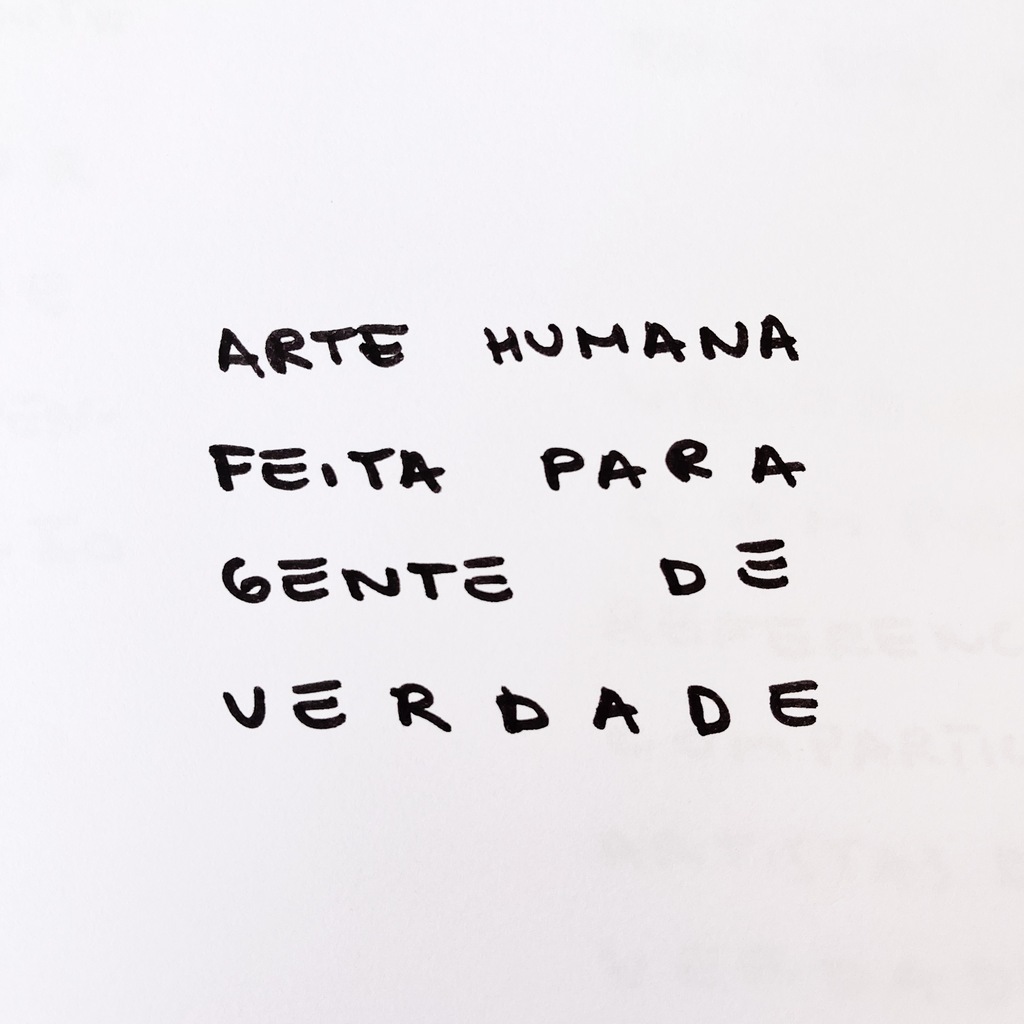 ARTE HUMANA
FEITA PARA
GENTE DE
VERDADE